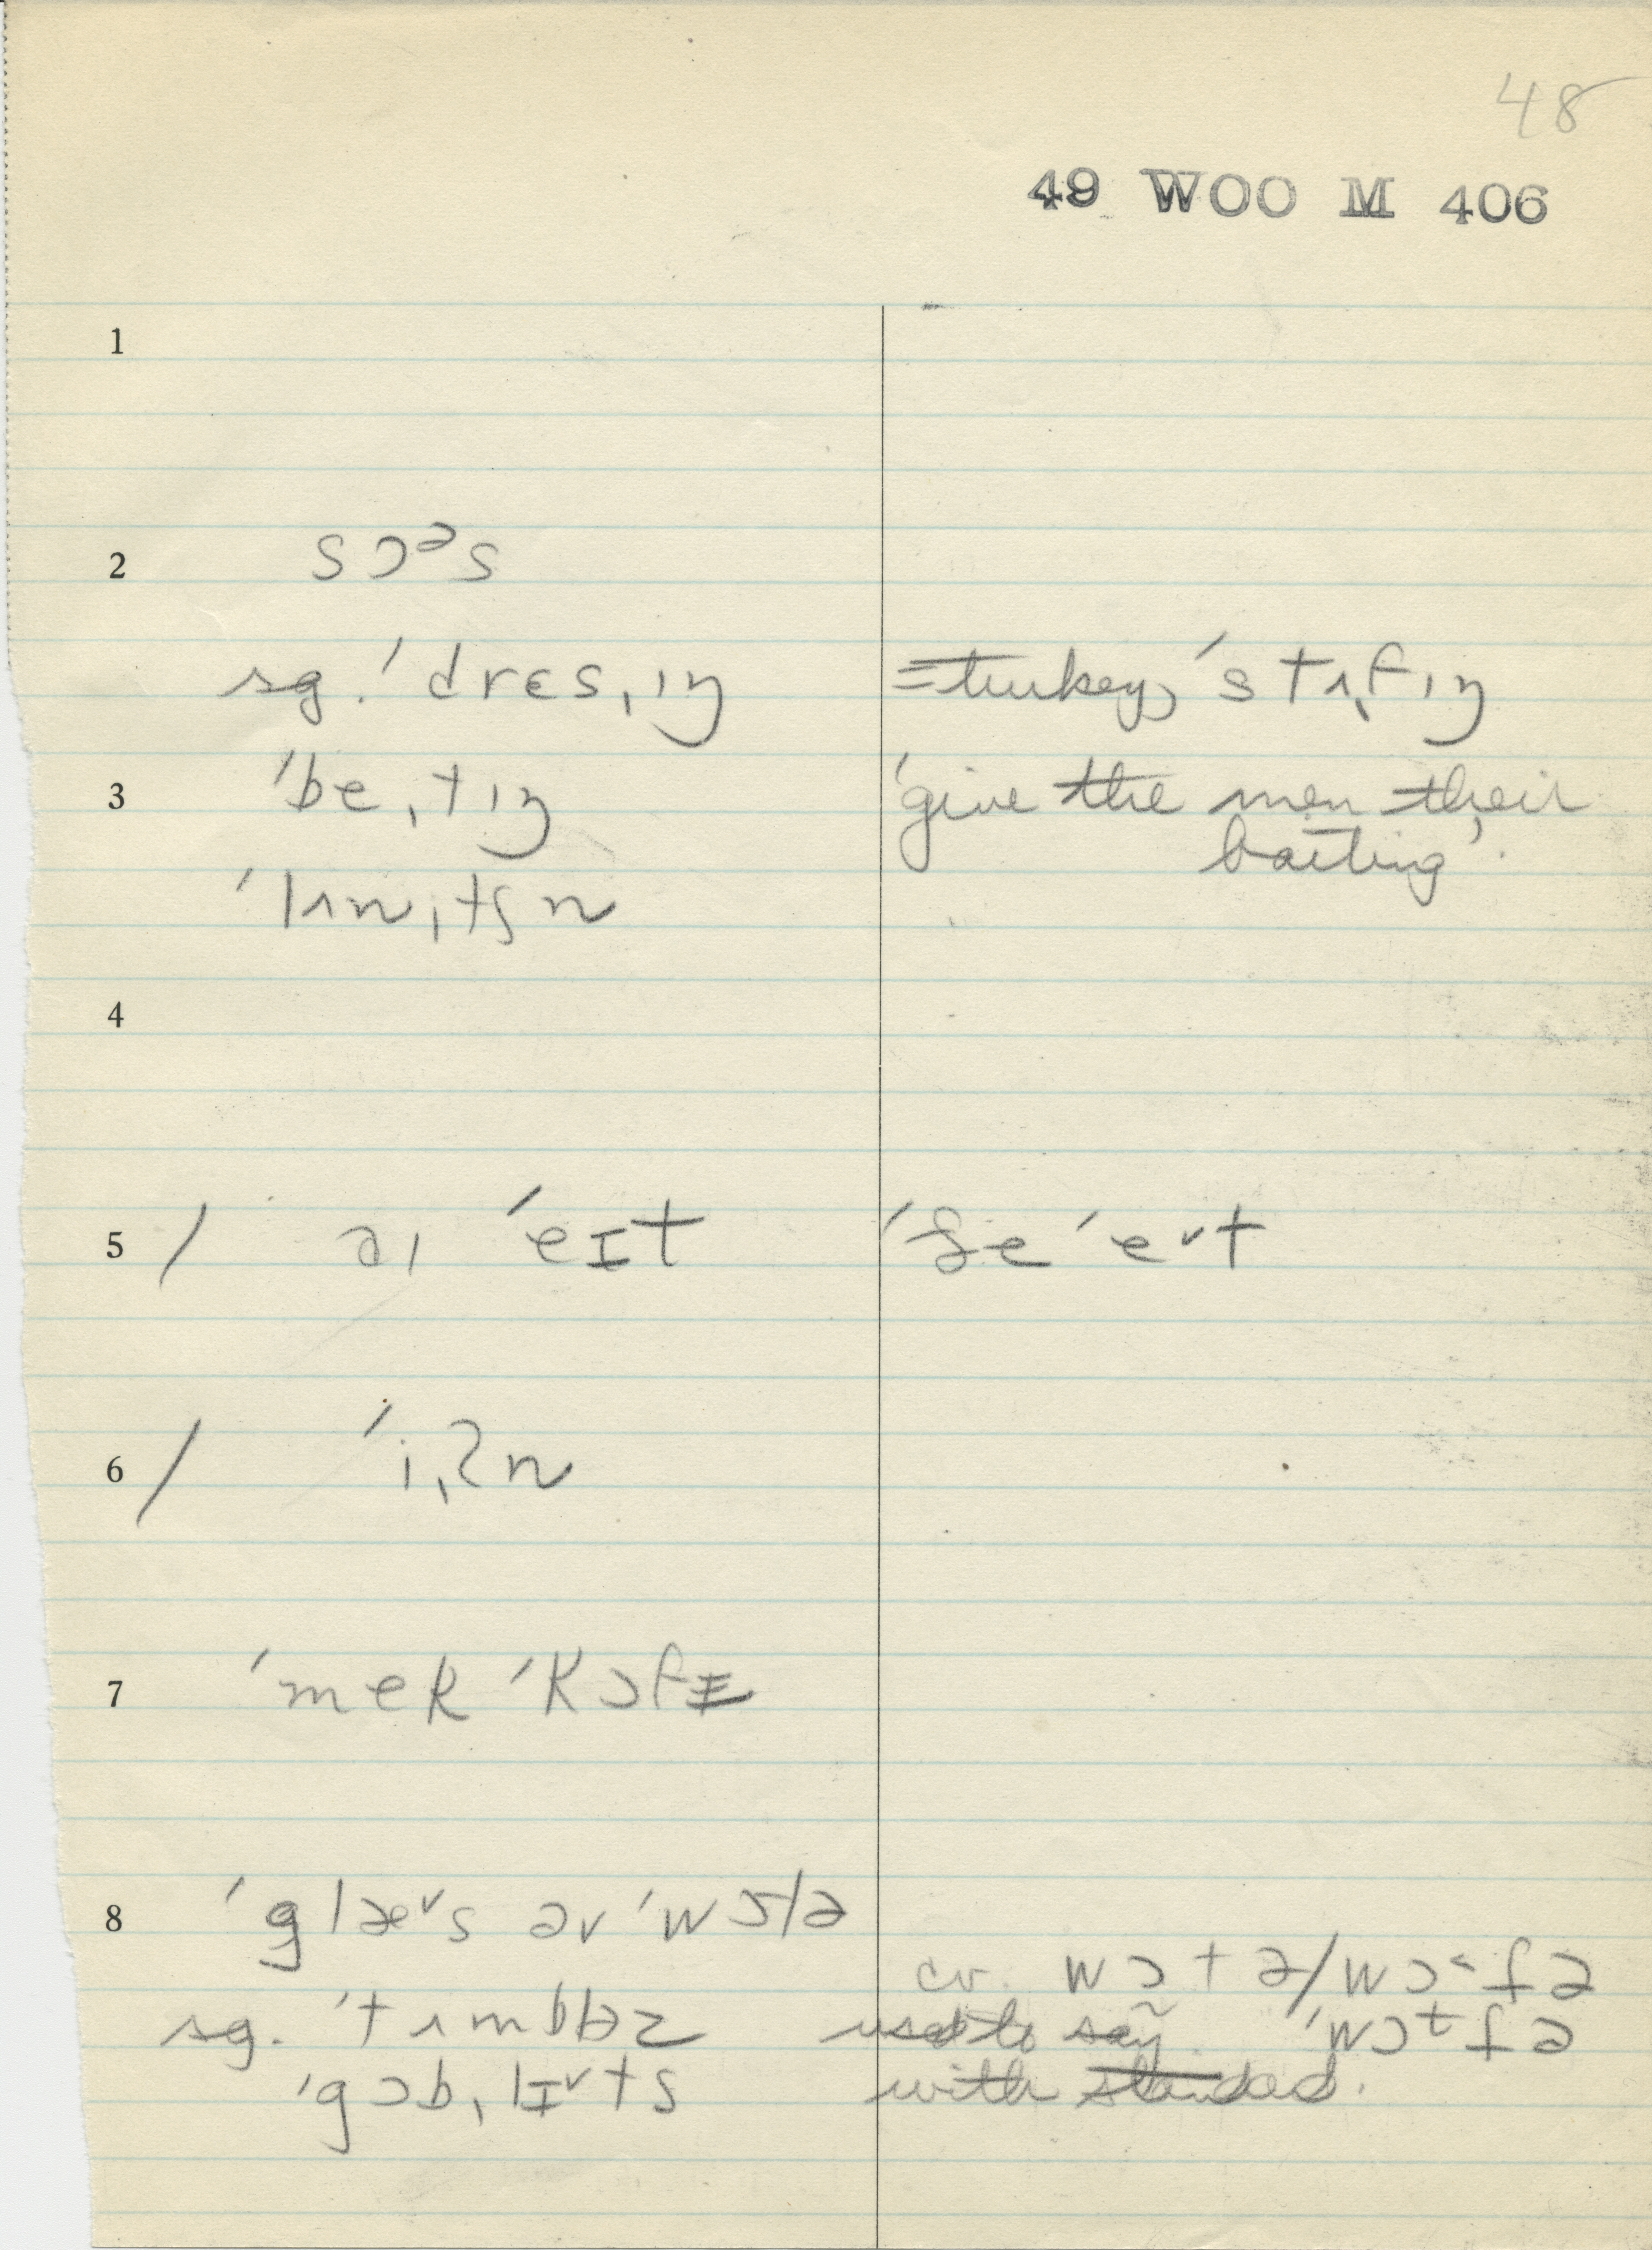 48
49 WOO M 406
1
2 sɔᵊs
sg. ˈdrɛsˌɪŋ =turkey, ˈstʌˌfɪŋ
3 ˈbeˌtɪŋ 'give the men their
baiting'.
ˈlʌnˌtʃn
4
5 / aɪ ˈeɪt ˈʃe ˈeᵛt
6 / ˈiˌʔn
7 ˈmek ˈkɔfɪ
8 ˈglæᵛs əv ˈwɔtə
cv. wɔtə/wɔ˂tə
sg. ˈtʌmbləz used to say ˈwɔtə
ˈgɔbˌlɪᵛts with standed.